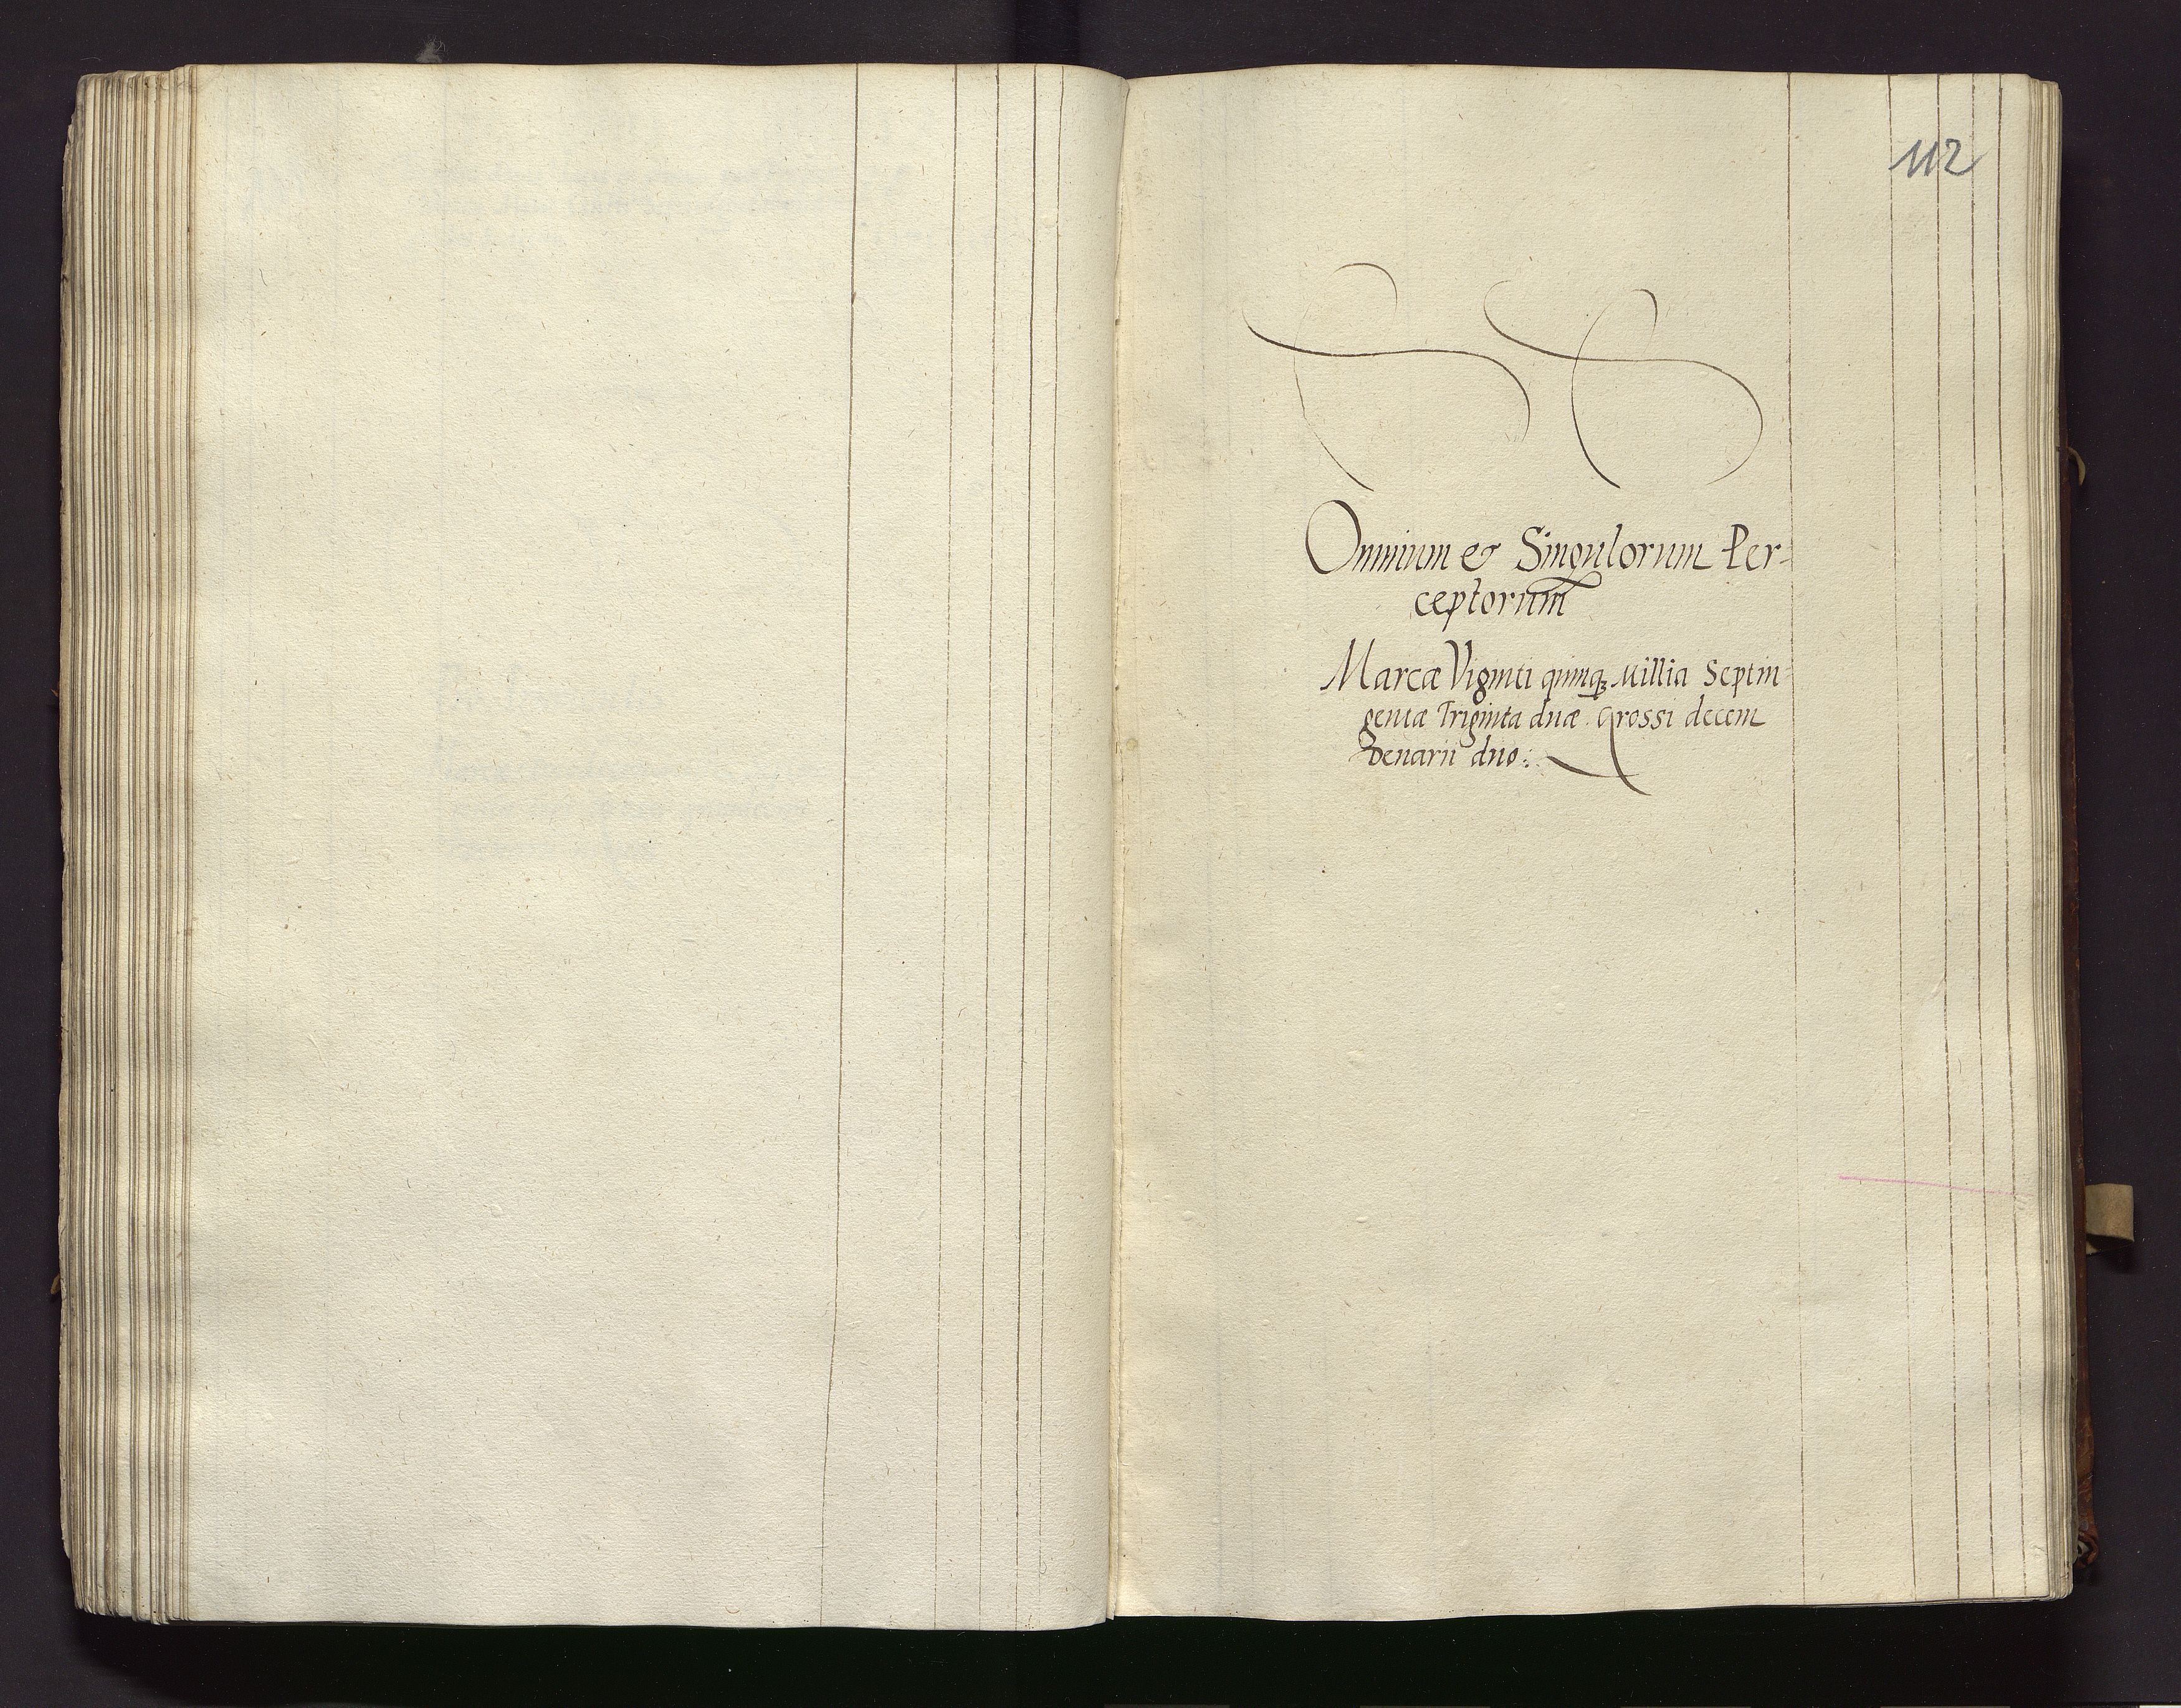 112
Omnium et Singulorum Per-
ceptorum
Marcæ Viginti quinq3 Millia Septin-
gentæ Triginta duæ. Grossi decem
Denarii duo:.